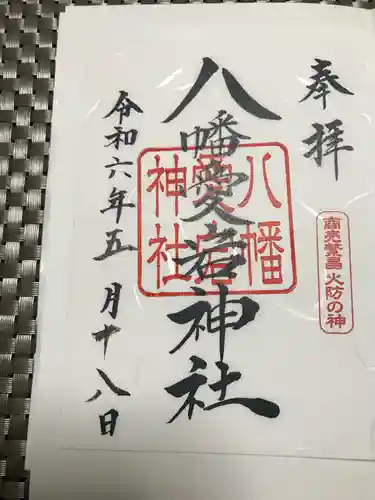 奉拝
商売繁昌 火防の神
八幡愛宕神社
八幡愛宕神社
令和六年五月十八日